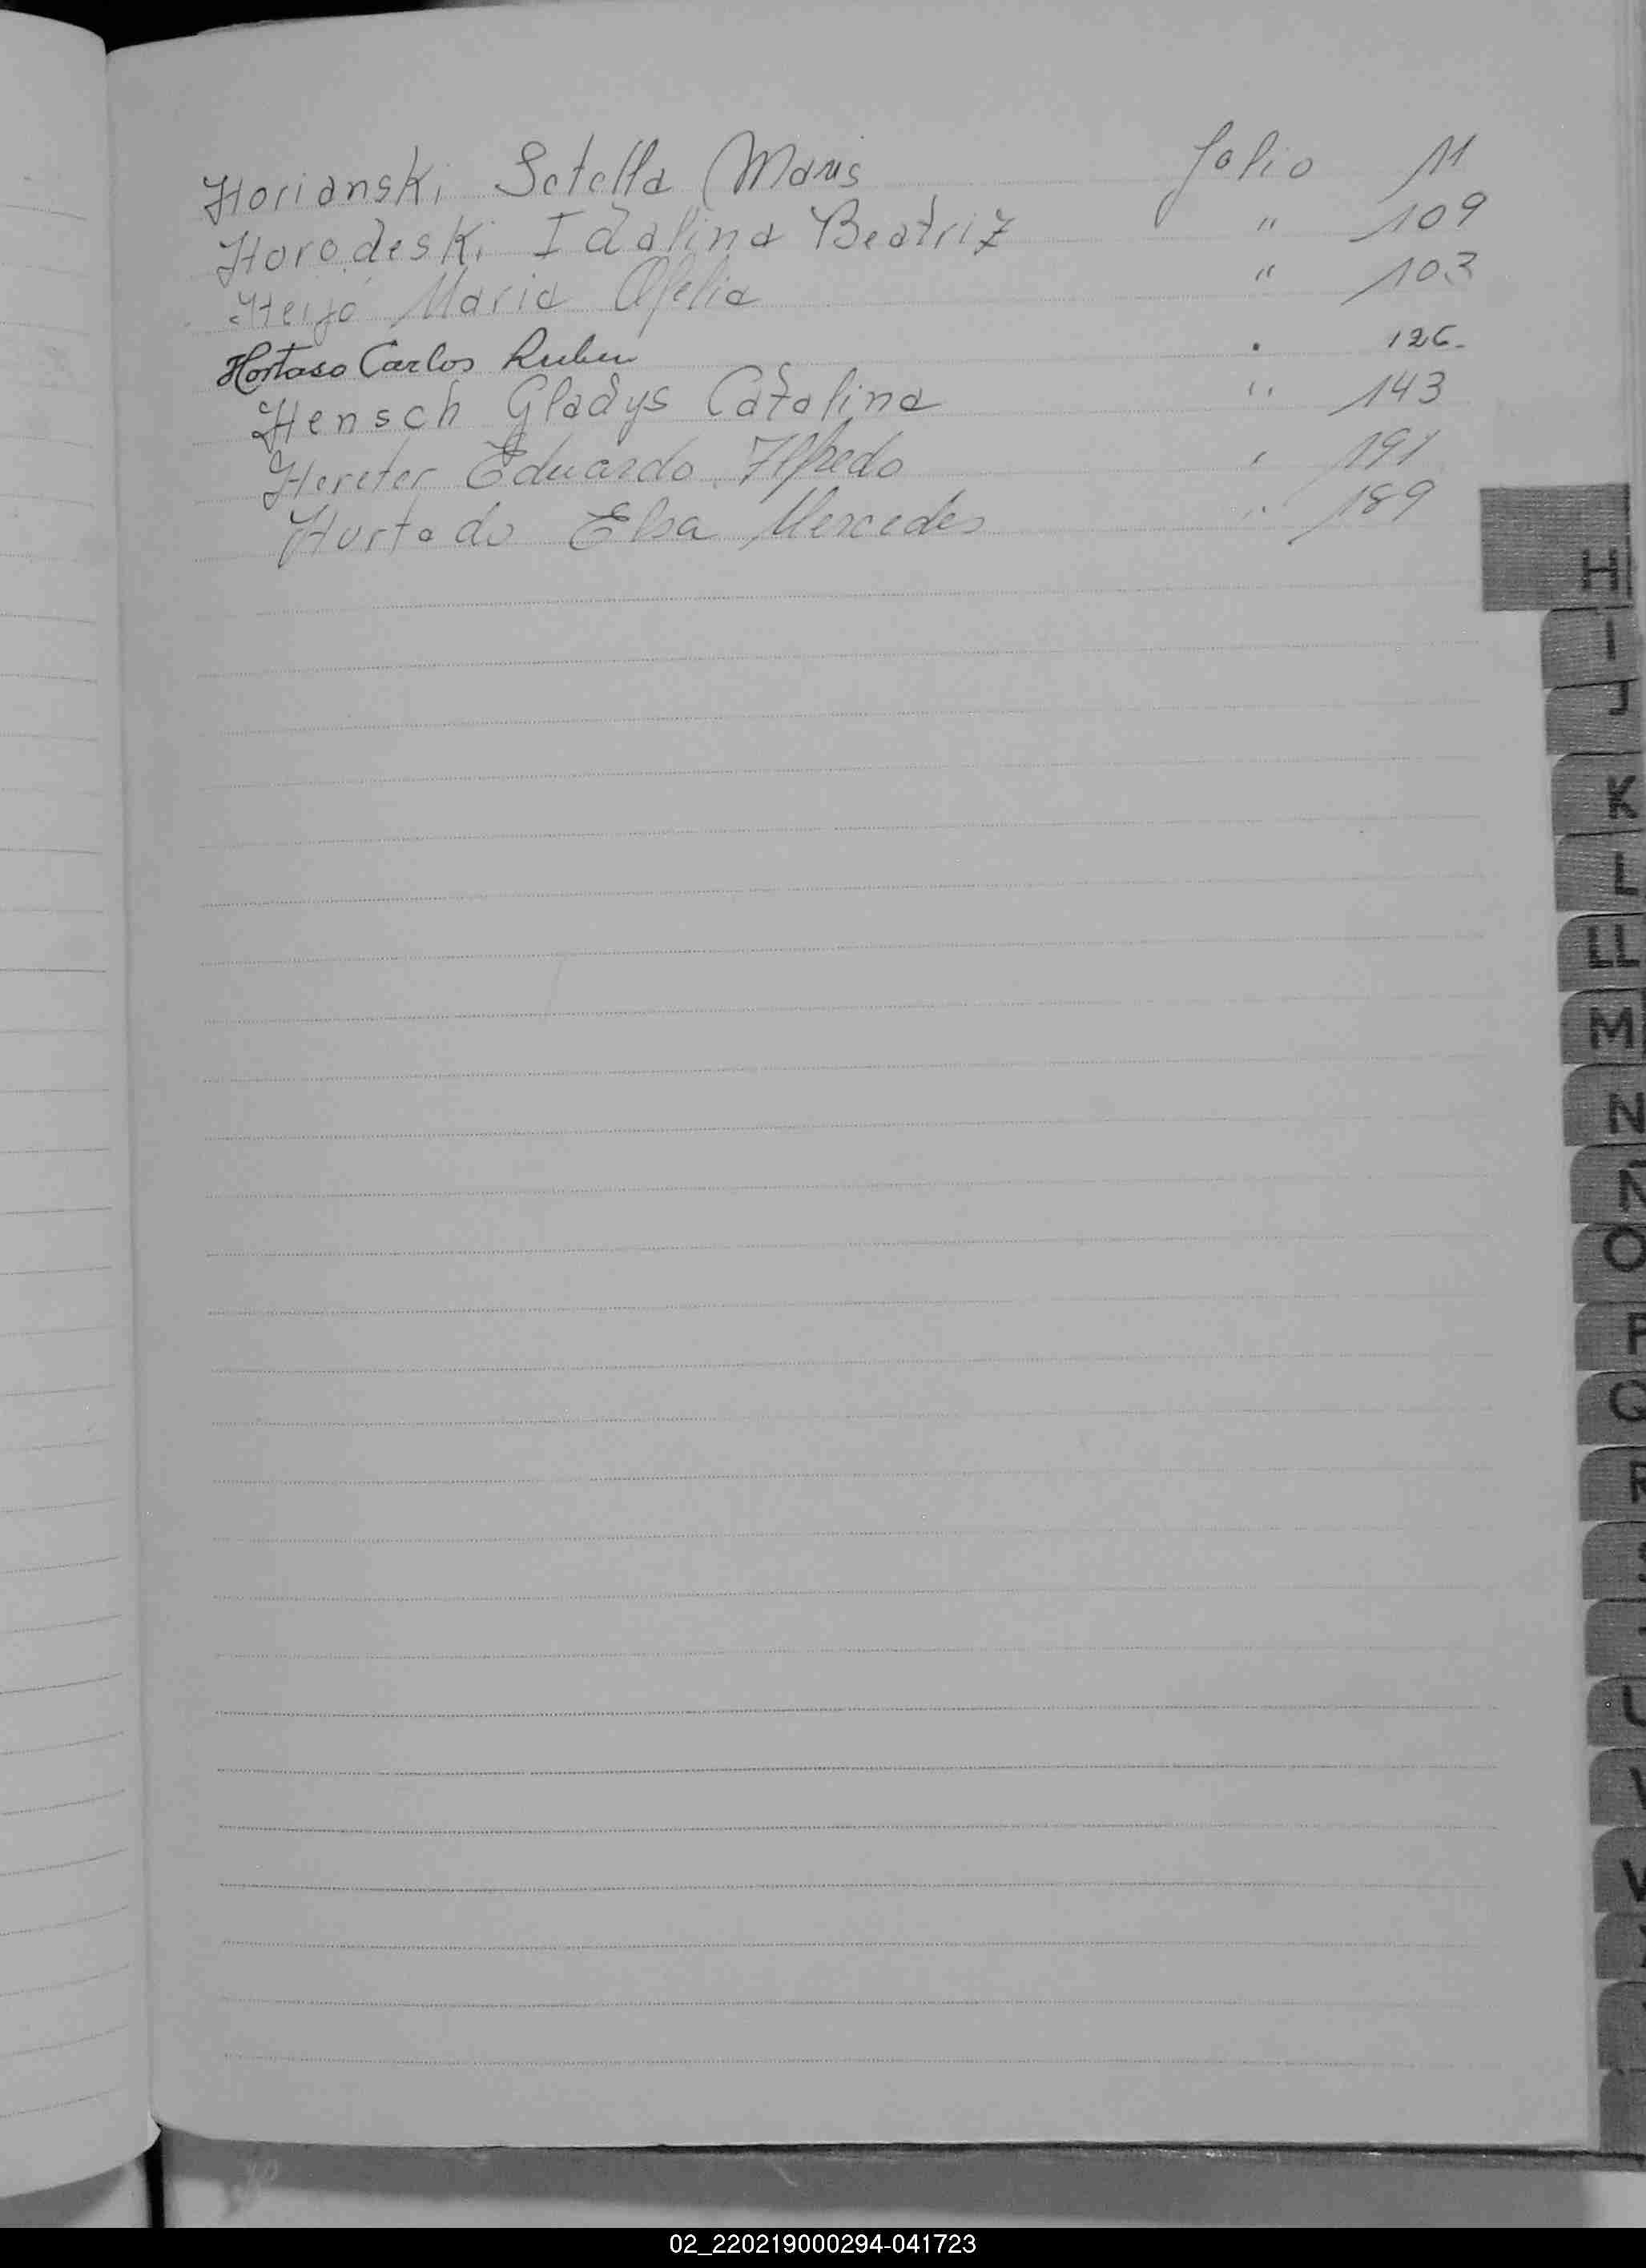 Horianski Setella Maris folio 11
Horodeski Idalina Beatriz " 109
Heijo Maria Ofelia " 103
Hortaso Carlos Ruben . 126.
Hensch Gladys Catalina " 143
Hereter Eduardo Alfredo " 191
Hurtado Elsa Mercedes " 189
H
I
J
K
L
LL
M
N
Ñ
O
P
Q
R
U
V
02_220219000294-041723